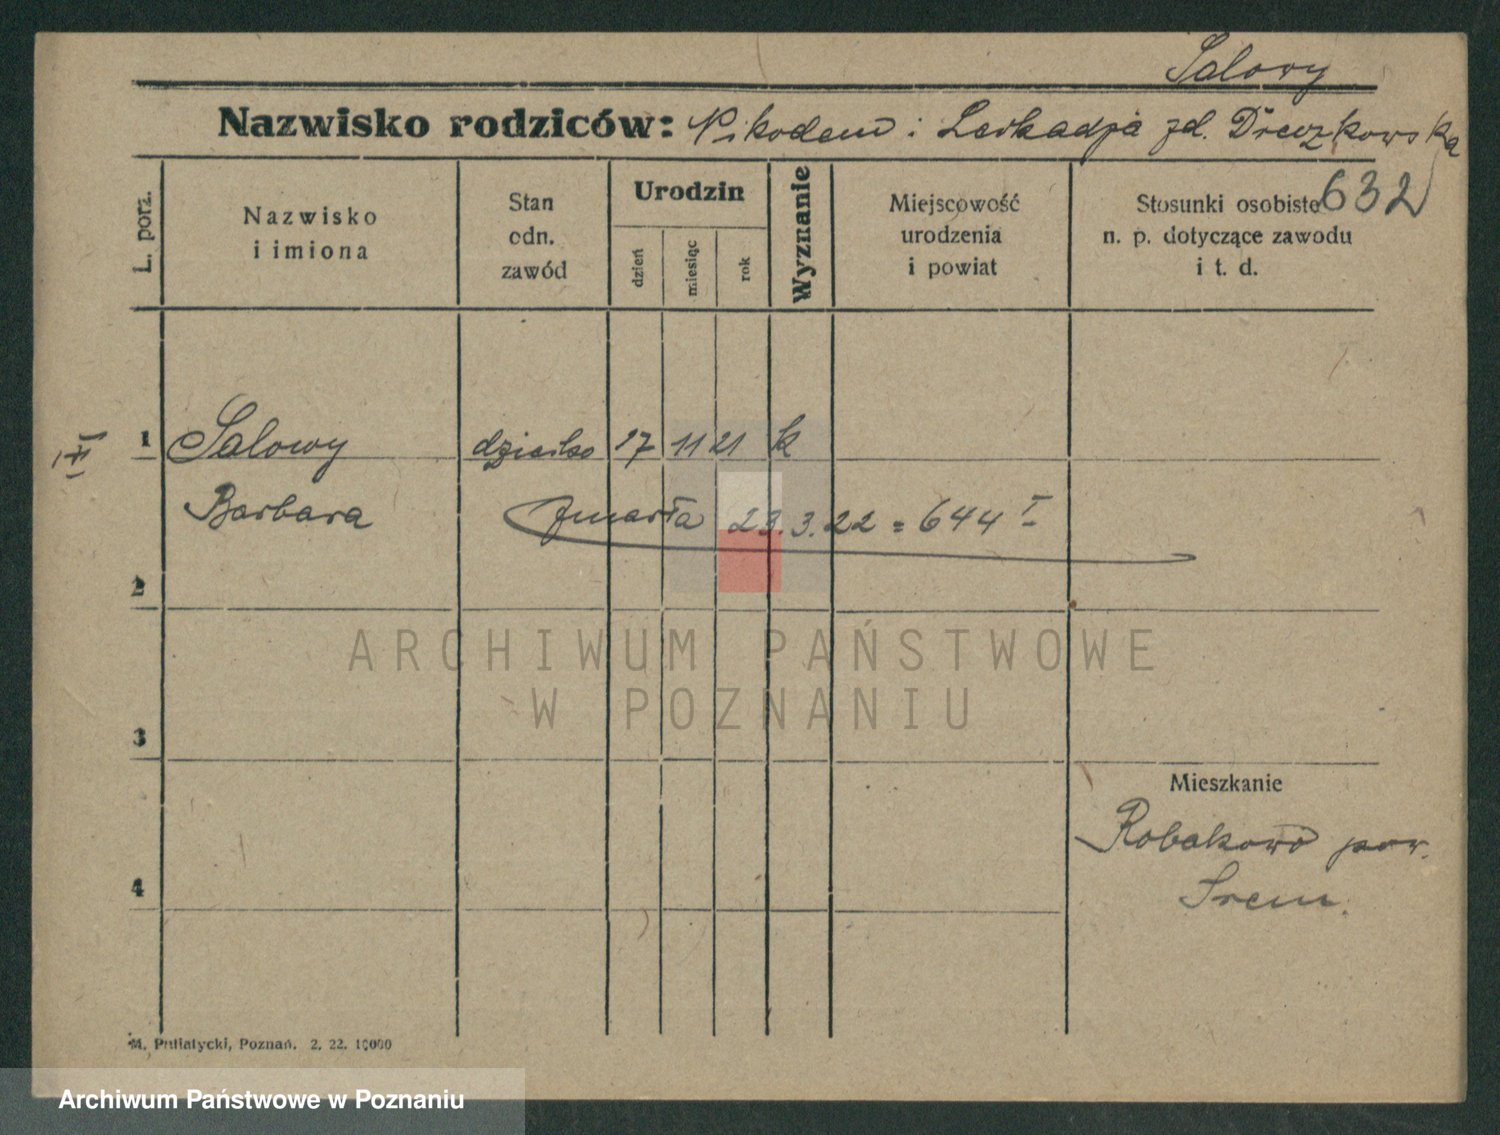 Salowy
Nazwisko rodziców: Nikodem i Leokadja zd. Dreczkowska
632
L. porz.
Nazwisko
i imiona
Stan
odn.
zawód
Urodzin
dzień
miesiąc
rok
Wyznanie
Miejscowość
urodzenia
i powiat
Stosunki osobiste
n. p. dotyczące zawodu
i t. d.
1 Salowy dziecko 17 11 21 k
Barbara zmarła 23.3.22 = 644 I
2
3
ARCHIWUM PAŃSTWOWE
W POZNANIU
Mieszkanie
Robakowo pow.
Srem.
4
M. Putiatycki, Poznań. 2. 22. 10000
Archiwum Państwowe w Poznaniu